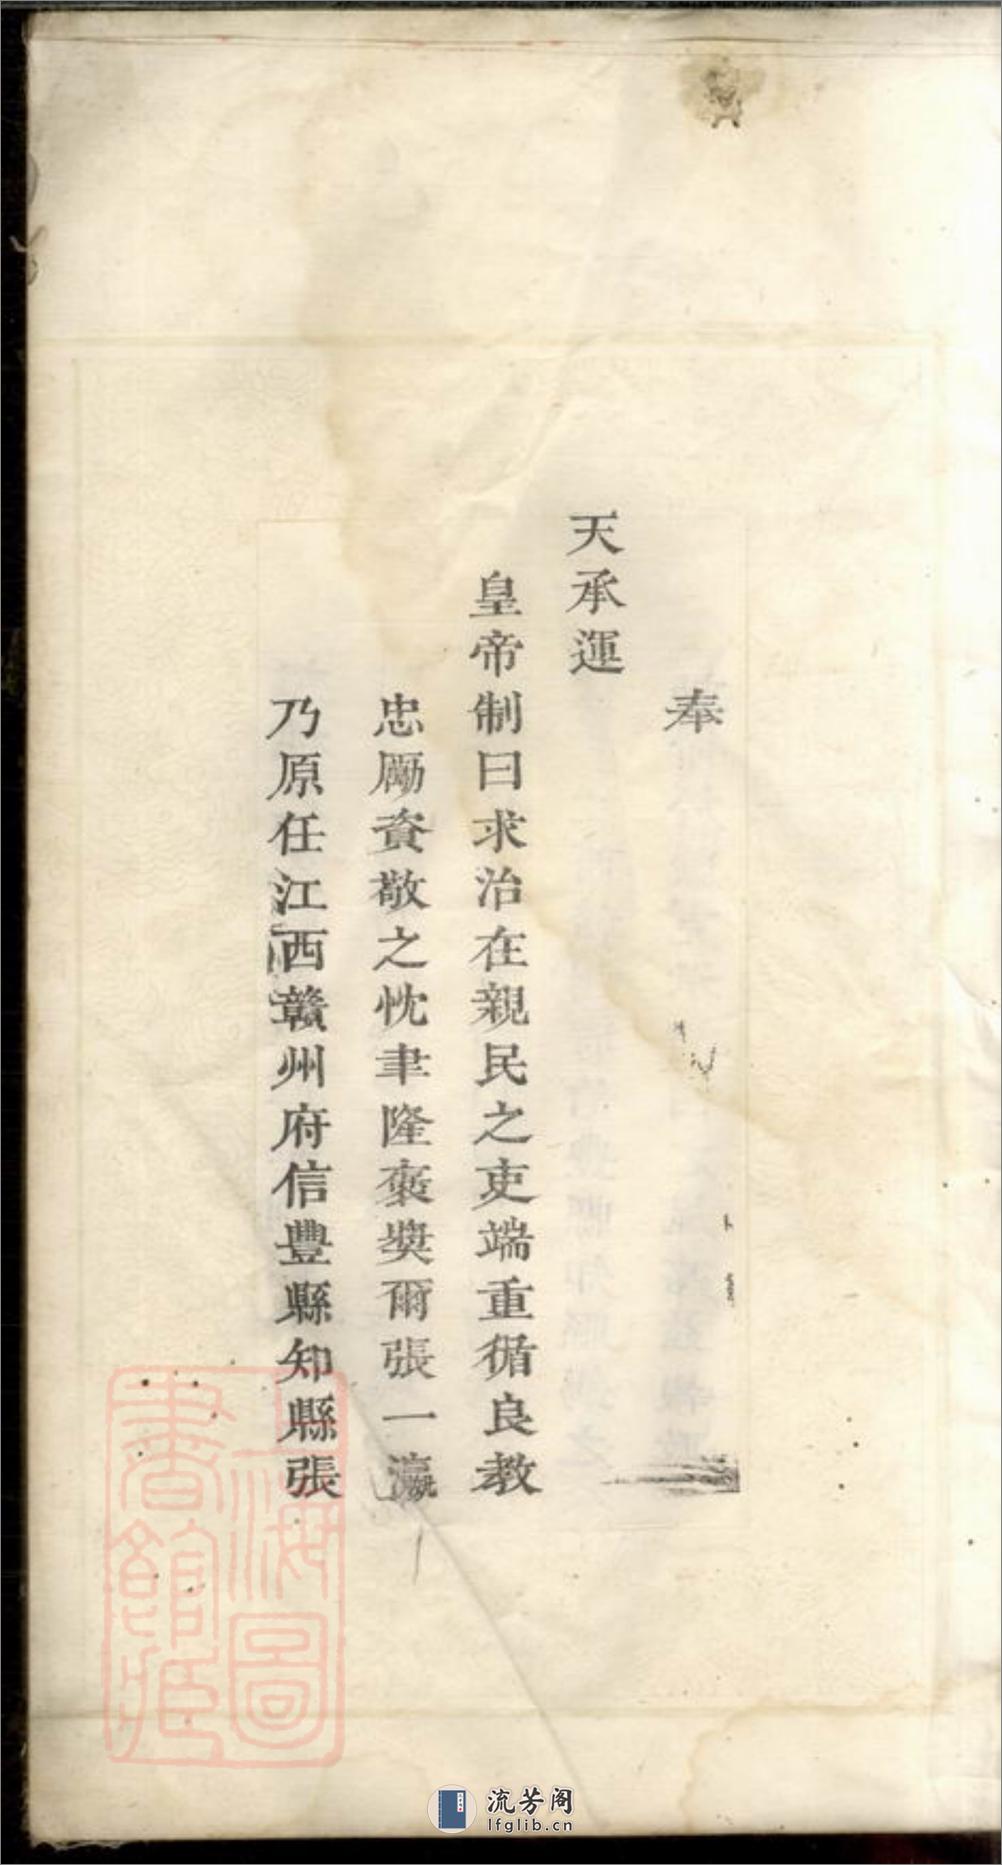 奉
天承運
皇帝制曰求治在親民之吏端重循良教
忠勵資敬之忱聿隆褒奬爾張一瀛
乃原任江西贛州府信豐縣知縣張
上海圖
書館藏
流芳阁
lfglib.cn